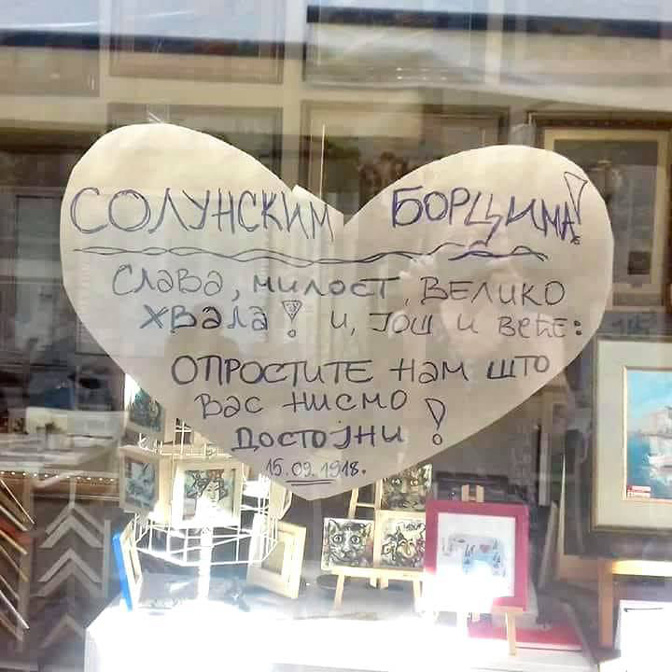 СОЛУНСКИМ БОРЦИМА!
СЛАВА, МИЛОСТ, ВЕЛИКО
ХВАЛА! И, ЈОШ И ВЕЋЕ:
ОПРОСТИТЕ НАМ ШТО
ВАС НИСМО
ДОСТОЈНИ!
15.09.1918.